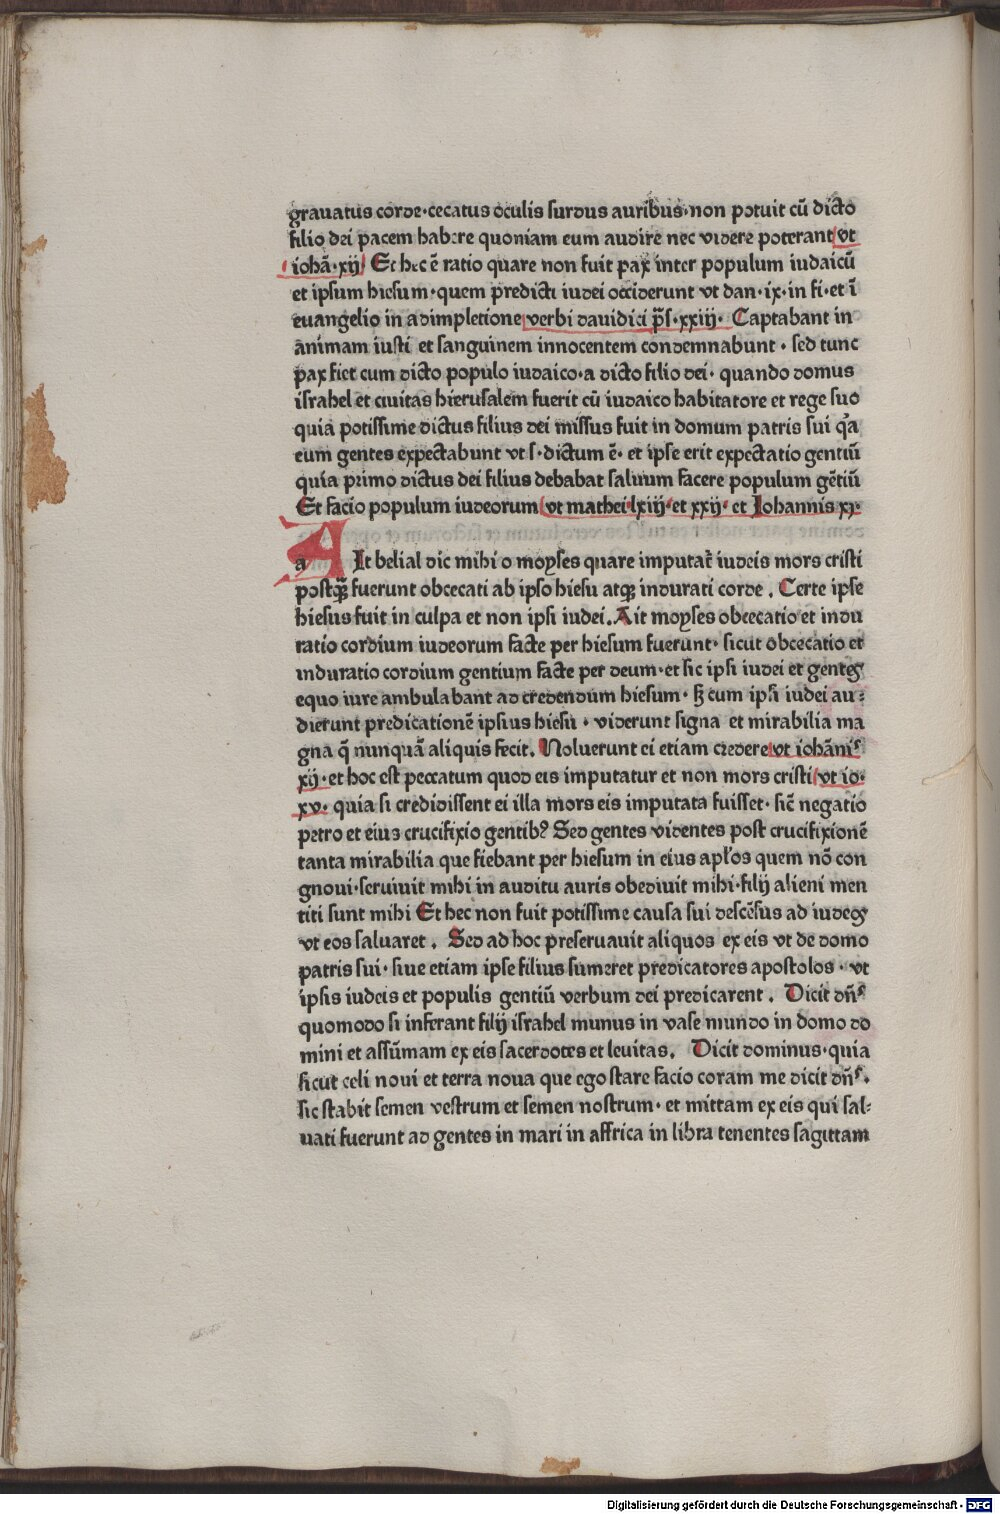 grauatus corde·cecatus oculis surdus auribus·non potuit cū dicto
filio dei pacem habere quoniam eum audire nec videre poterant vt
iohā·xij Et hec ē ratio quare non fuit pax inter populum iudaicū
et ipsum hiesum·quem predicti iudei occiderunt vt dan·ix·in fi·et ī
euangelio in adimpletione verbi dauidici p̄s·xxiij· Captabant in
animam iusti et sanguinem innocentem condemnabunt · sed tunc
pax fiet cum dicto populo iudaico·a dicto filio dei· quando domus
israhel et ciuitas hierusalem fuerit cū iudaico habitatore et rege suo
quia potissime dictus filius dei missus fuit in domum patris sui qͣa
eum gentes expectabunt vt s·dictum ē· et ipse erit expectatio gentiū
quia primo dictus dei filius debabat saluum facere populum gētiū
Et facio populum iudeorum vt mathei·lxiij·et xxij· et Johannis xx·
a It belial dic mihi o moyses quare imputat̄ iudeis mors cristi
postqꝫ fuerunt obcecati ab ipso hiesu atqꝫ indurati corde . Certe ipse
hiesus fuit in culpa et non ipsi iudei. Ait moyses obcecatio et indu
ratio cordium iudeorum facte per hiesum fuerunt· sicut obcecatio et
induratio cordium gentium facte per deum·et sic ipsi iudei et gentes
equo iure ambulabant ad credendum hiesum· sꝫ cum ipsi iudei au⸗
dierunt predicationē ipsius hiesu · viderunt signa et mirabilia ma
gna q̄ nunquā aliquis fecit. Noluerunt ei etiam credere vt iohānis
xij·et hoc est peccatum quod eis imputatur et non mors cristi vt io·
xv· quia si credidissent ei illa mors eis imputata fuisset· sic̄ negatio
petro et eius crucifixio gentibꝰ Sed gentes videntes post crucifixionē
tanta mirabilia que fiebant per hiesum in eius apłos quem nō con
gnoui·seruiuit mihi in auditu auris obediuit mihi·filij alieni men
titi sunt mihi Et hec non fuit potissime causa sui descēsus ad iudeos
vt eos saluaret . Sed ad hoc preseruauit aliquos ex eis vt de domo
patris sui· siue etiam ipse filius sumeret predicatores apostolos · vt
ipsis iudeis et populis gentiū verbum dei predicarent . Dicit dn̄s
quomodo si inferant filij israhel munus in vase mundo in domo do
mini et assūmam ex eis sacerdotes et leuitas. Dicit dominus·quia
sicut celi noui et terra noua que ego stare facio coram me dicit dn̄s.
sic stabit semen vestrum et semen nostrum· et mittam ex eis qui sal⸗
uati fuerunt ad gentes in mari in affrica in libra tenentes sagittam
Digitalisierung gefördert durch die Deutsche Forschungsgemeinschaft - DFG